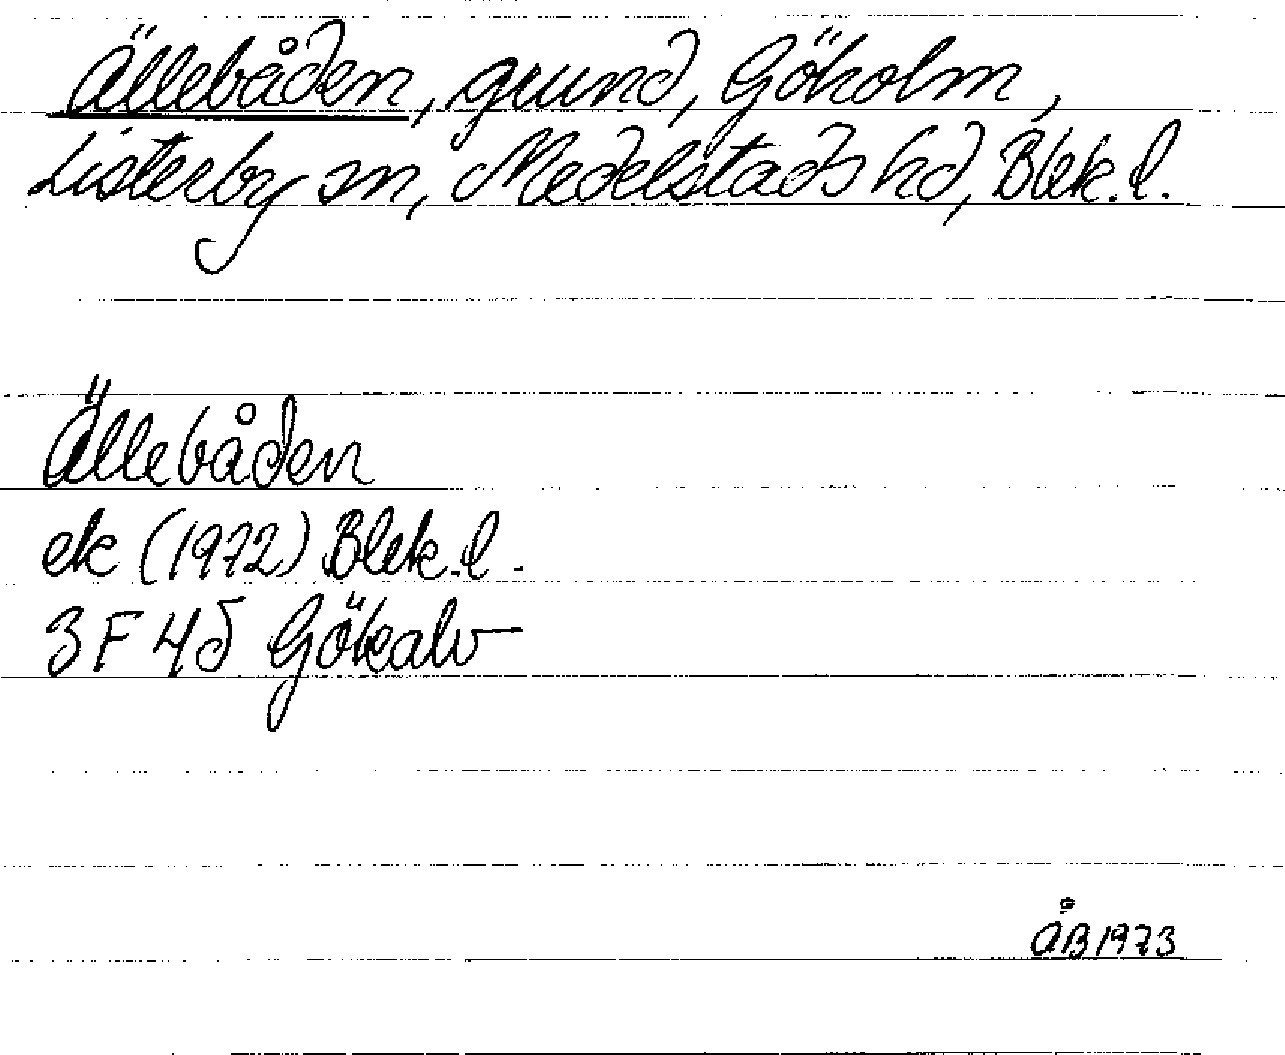 Ällebåden, grund, Göholm,
Listerby sn, Medelstads hd, Blek. l.
Ällebåden
ek (1972) Blek. l.
3F 4d Gökalv
ÅB 1973